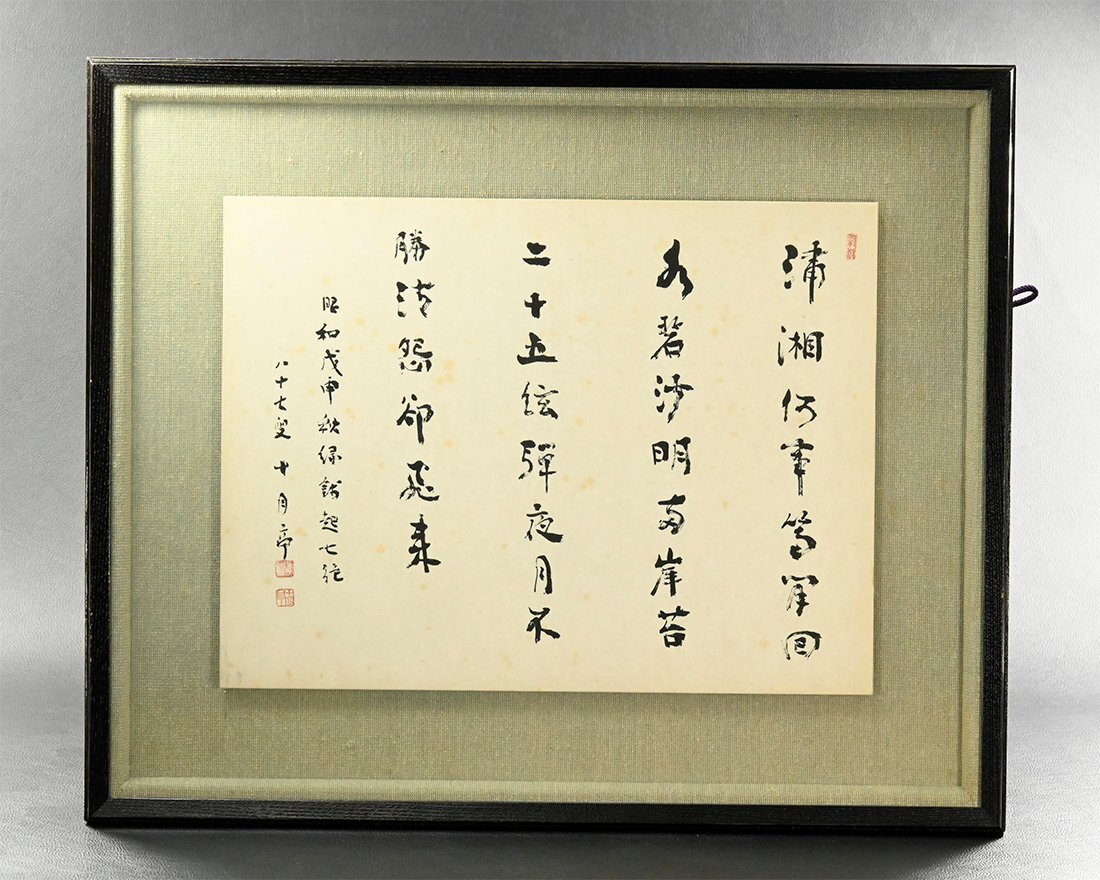 瀟湘何事等閒回
水碧沙明兩岸苔
二十五絃彈夜月不
勝清怨卻飛来
昭和戊申秋録銭起七絶
八十七叟 十月亭